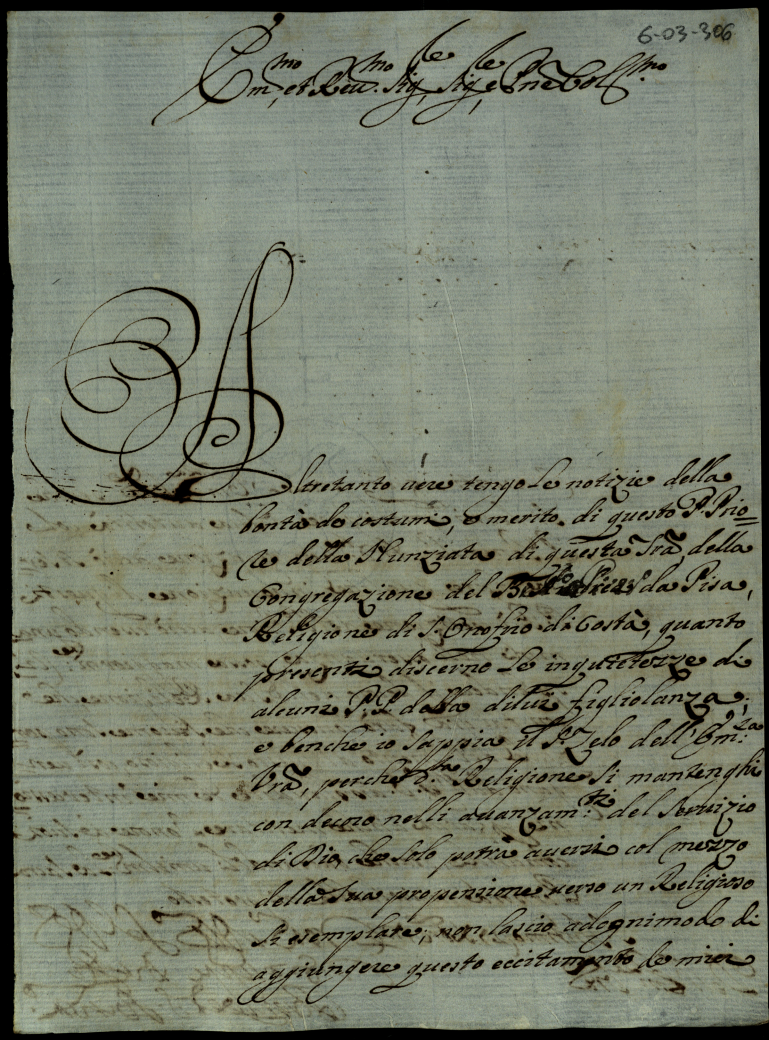 6-03-306
Em.mo, et Reu.mo Sig.re, Sig.re, e P̃ne Col.mo
Altretanto vere tengo le notizie della
bontà de costumi, e merito di questo P. Prio=
re della Nunziata di questa Trã della
Congregazione del B. Pietro da Pisa,
Religione di S. Onofrio di Costà, quanto
presenti discerno le inquietezze di
alcuni P.P. della dilui figliolanza;
e benche io sappia il S. Zelo dell' Em.za
Vrã, perche d.ta Religione si mantenghi
con decoro nelli auanzam.ti del Seruizio
di Dio, che solo potrà auersi col mezzo
della Sua propensione verso un Religioso
sì esemplare; non lascio adognimodo di
aggiungere questo eccitamento de miei